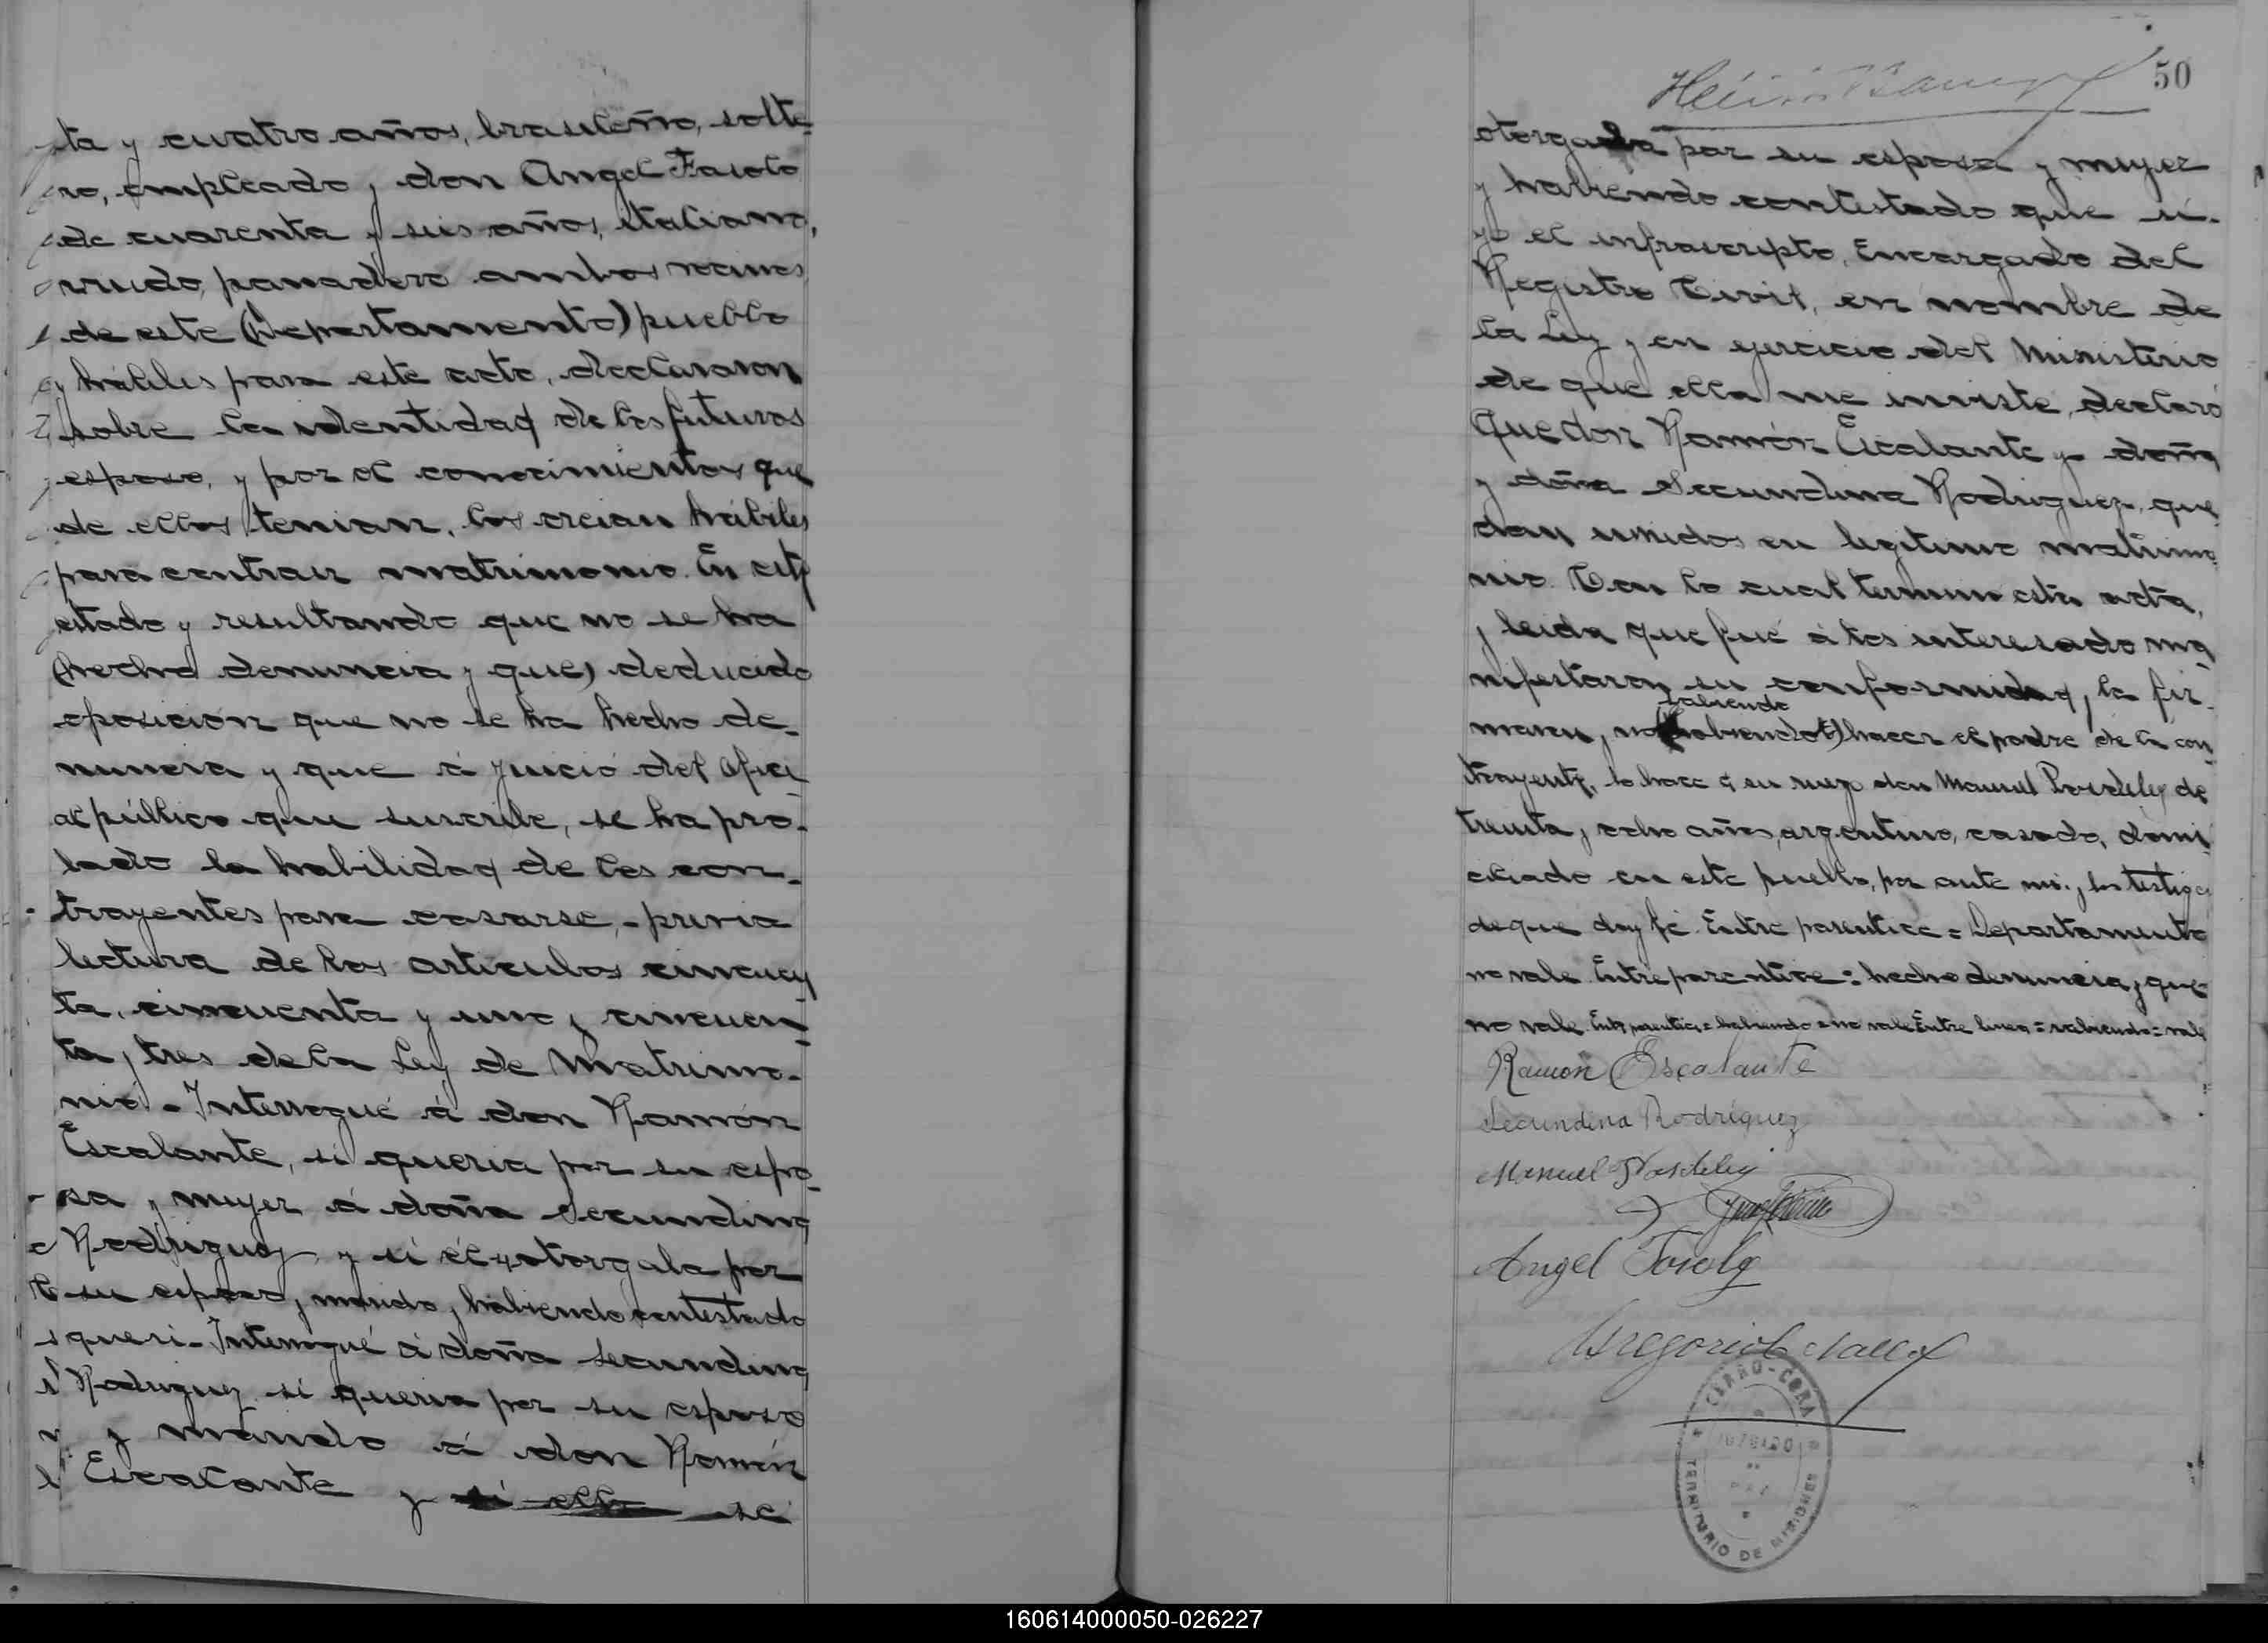 ta y cuatro años, brasileño, solte-
ro, empleado y don Angel Fasolo
de cuarenta y seis años, italiano,
viudo, panadero ambos vecinos
de este (Departamento) pueblo
y hábiles para este acto, declararon
sobre la identidad de los futuros
esposo, y por el conocimientos que
de ellos tenian, los creian hábiles
para contraer matrimonio. En este
estado y resultando que no se ha
(hecho denuncia y que) deducido
oposición que no se ha hecho de-
nuncia y que á juicio del ofici-
al público que suscribe, se ha pro-
bado la habilidad de los con-
trayentes para casarse, - previa
lectura de los articulos cincuen
ta, cincuenta y uno y cincuen-
ta y tres de la Ley de Matrimo-
nio - Interrogué á don Ramón
Escalante, si queria por su espo-
sa y mujer á doña Secundina
Rodriguez y si él otorgala por
su esposo y marido y habiendo contestado
que si - Interrogué á doña Secundina
Rodriguez si queria por su esposo
y marido á don Ramón
Escalante y si ella se
50
otorgada por su esposa y mujer
y habiendo contestado que si -
yo el infrascripto, Encargado del
Registro Civil, en nombre de
la Ley y en ejercicio del Ministerio
de que ella me inviste, declaró
Que don Ramón Escalante y doña
y doña Secundina Rodriguez, que
dan unidos en legitimo matrimo-
nio. Con lo cual termino esta acta,
y leida que fué á los interesado ma
nifestaron su conformidad, la fir-
sabiendo
maron, no (habiendo) hacer el padre de la con
trayente, lo hace á su ruego don Manuel de
treinta y ocho años, argentino, casado, domi
ciliado en este pueblo, por ante mi y los testigos
de que doy fé. Entre parentice = Departamento
no vale. Entre parentice = hecho denuncia y que
no vale. Entre parentice = habiendo = no vale Entre linea = sabiendo = vale
Ramón Escalante
Secundina Rodríguez
Manuel
Angel
Gregorio
CERRO-CORÁ
JUZGADO
DE
PAZ
TERRITORIO DE MISIONES
160614000050-026227